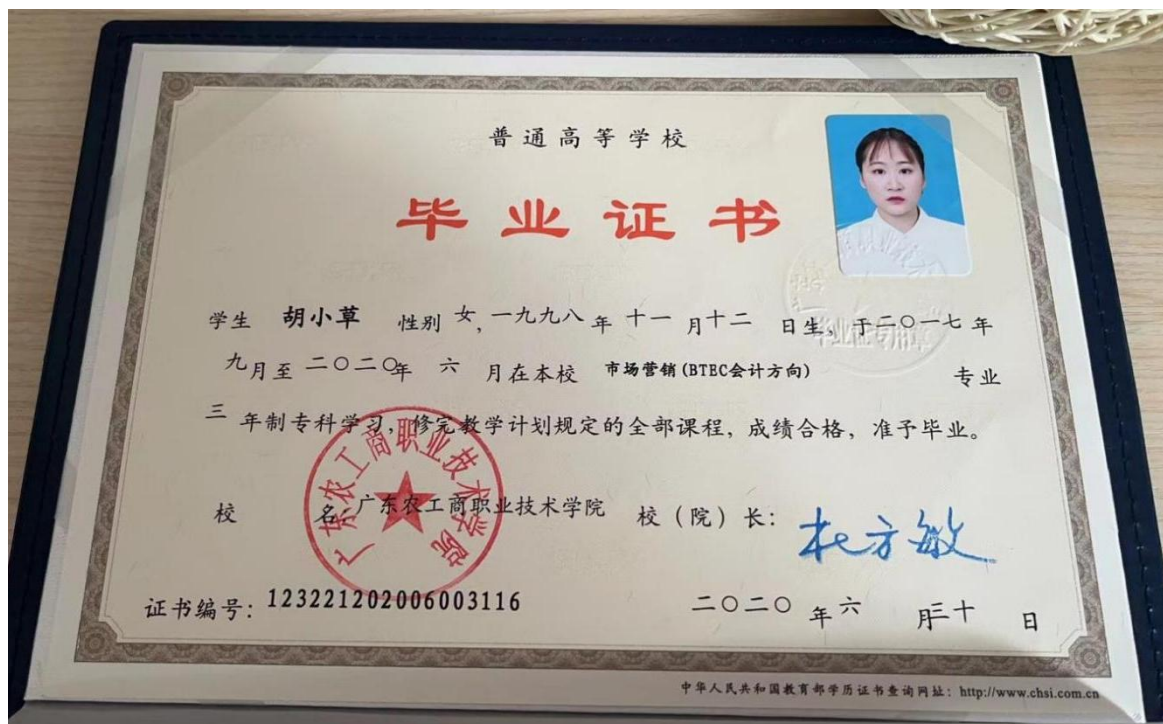 普通高等学校
毕业证书
学生 胡小草 性别 女, 一九九八 年 十一 月 十二 日生, 于二〇一七 年
九月至 二〇二〇年 六 月在本校 市场营销(BTEC会计方向) 专业
三 年制专科学习, 修完教学计划规定的全部课程, 成绩合格, 准予毕业。
校 名: 广东农工商职业技术学院 校(院)长: 杜方敏
广东农工商职业技术学院
毕业证专用章
证书编号: 123221202006003116 二〇二〇 年 六 月 三十 日
中华人民共和国教育部学历证书查询网址: http://www.chsi.com.cn